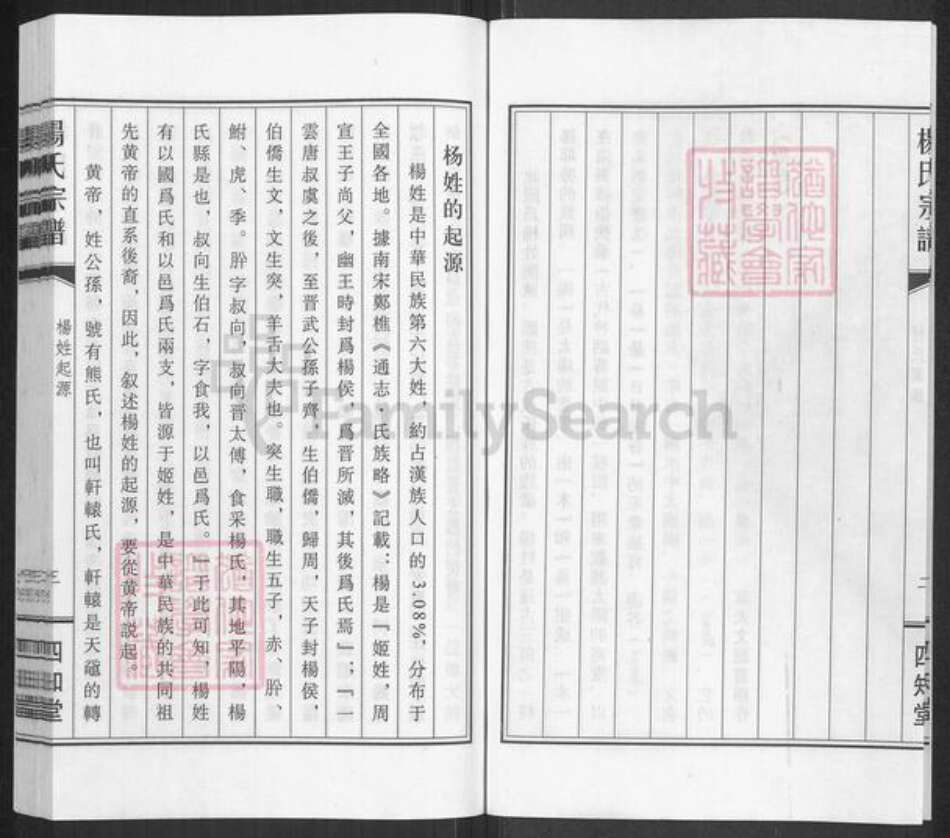 楊氏宗譜
二
四知堂
杨姓的起源
楊姓是中華民族第六大姓，約占漢族人口的 3.08%，分布于
全國各地。據南宋鄭樵《通志·氏族略》記載：楊是『姬姓，周
宣王子尚父，幽王時封爲楊侯，爲晉所滅，其後爲氏焉』；『一
雲唐叔虞之後，至晋武公孫子齊，生伯僑，歸周，天子封楊侯，
伯僑生文，文生突，羊舌大夫也。突生職，職生五子，赤、肸、
鮒、虎、季。肸字叔向，叔向晋太傅，食采楊氏，其地平陽，楊
氏縣是也，叔向生伯石，字食我，以邑爲氏。』于此可知，楊姓
有以國爲氏和以邑爲氏兩支，皆源于姬姓，是中華民族的共同祖
先黄帝的直系後裔，因此，叙述楊姓的起源，要從黄帝説起。
黄帝，姓公孫，號有熊氏，也叫軒轅氏，軒轅是天黿的轉
楊氏宗譜
楊姓起源
三
四知堂
FamilySearch